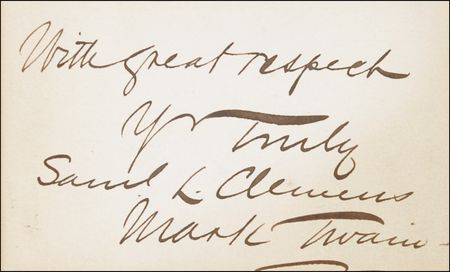 With great respect
Yr Truly
Saml. L. Clemens
Mark Twain